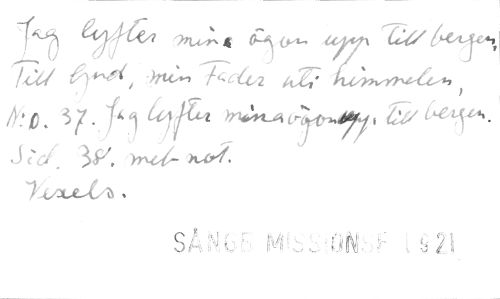 Jag lyfter mina ögon upp till bergen,
Till Gud, min Fader uti himmelen,
N:o. 37. Jag lyfter mina ögon upp till bergen.
Sid. 38. met not.
Vexels.
SÅNGB MISSIONSF 1921